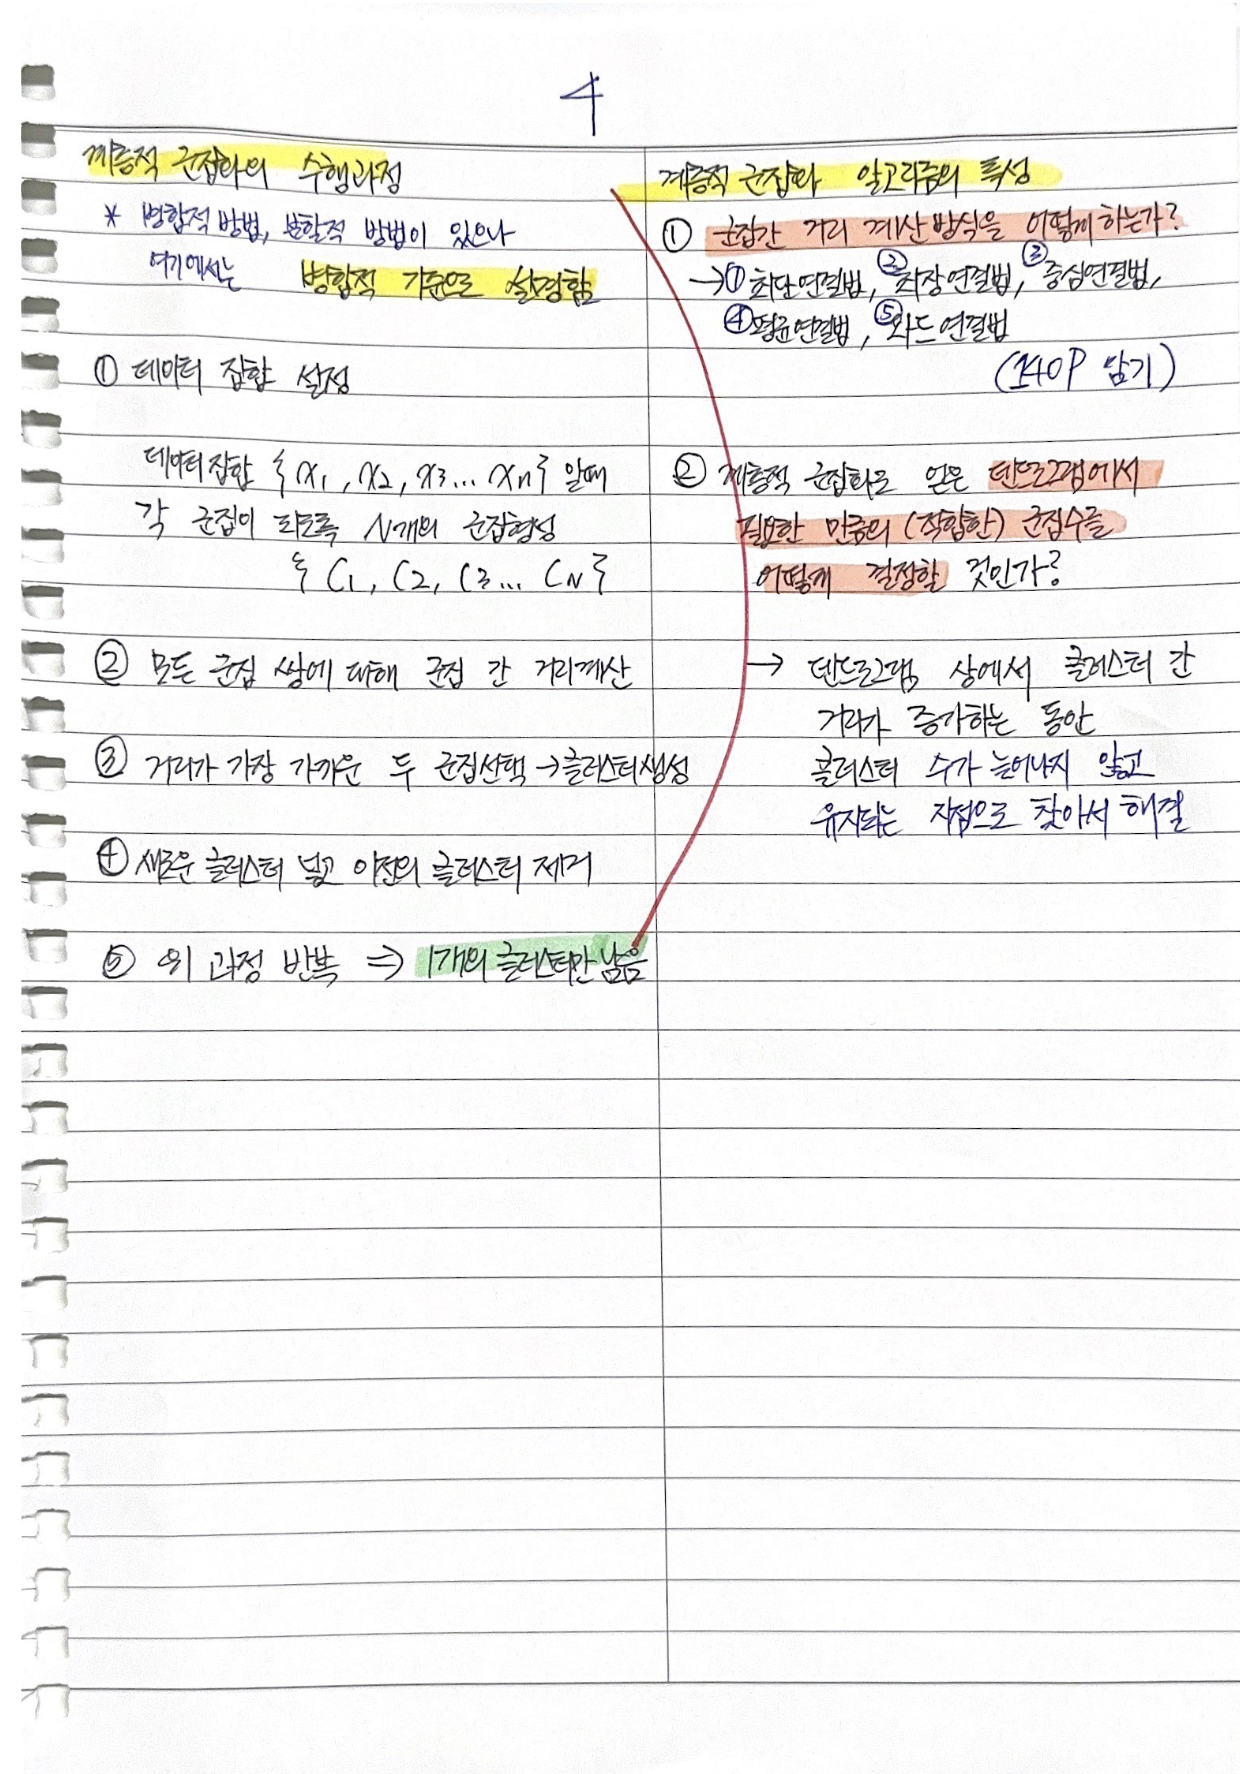 4
계층적 군집화의 수행과정
* 병합적 방법, 분할적 방법이 있으나
여기에서는 병합적 기준으로 설명함
① 데이터 집합 설정
데이터 집합 {x1, x2, x3... xn} 일때
각 군집이 되도록 N개의 군집형성
{C1, C2, C3... CN}
② 모든 군집 쌍에 대해 군집 간 거리계산
③ 거리가 가장 가까운 두 군집선택 → 클러스터생성
④ 새로운 클러스터 넣고 이전의 클러스터 제거
⑤ 위 과정 반복 ⇒ 1개의 클러스터만 남음
계층적 군집화 알고리즘의 특성
① 군집간 거리 계산방식을 어떻게 하는가?
→① 최단연결법, ② 최장연결법, ③ 중심연결법,
④ 평균연결법, ⑤ 와드연결법
(140P 암기)
② 계층적 군집화로 얻은 덴드로그램에서
필요한 만큼의 (적합한) 군집수를
어떻게 결정할 것인가?
→ 덴드로그램 상에서 클러스터 간
거리가 증가하는 동안
클러스터 수가 늘어나지 않고
유지되는 지점으로 찾아서 해결